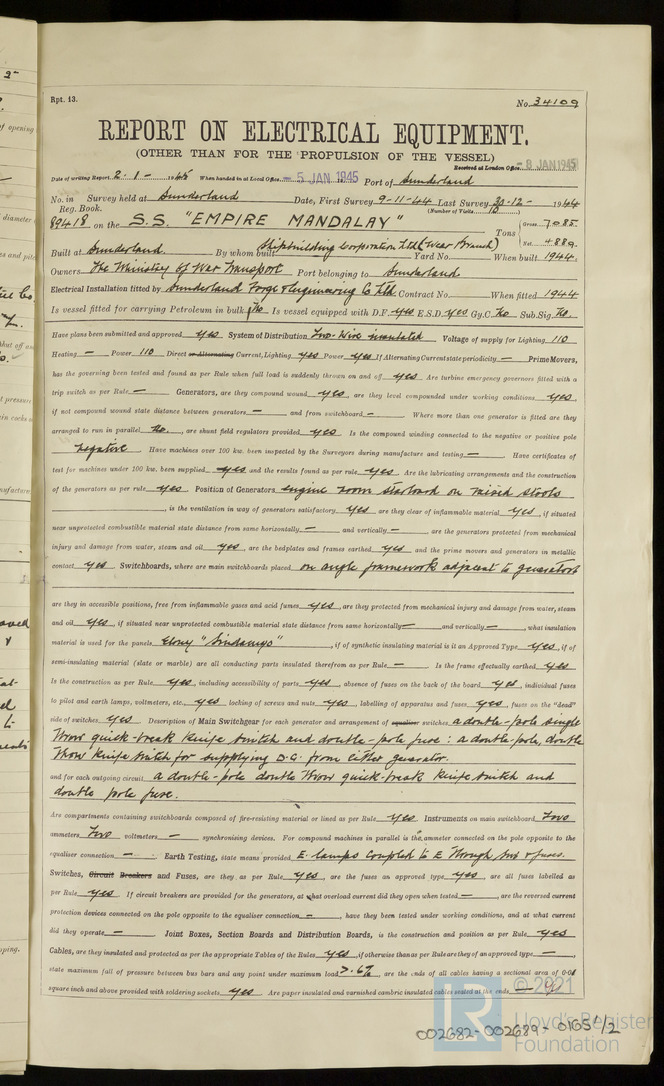 Rpt. 13.
No. 34109
REPORT ON ELECTRICAL EQUIPMENT.
(OTHER THAN FOR THE PROPULSION OF THE VESSEL)
Received at London Office - 8 JAN 1945
Date of writing Report 2 - 1 - 1945 When handed in at Local Office 5 JAN 1945 Port of Sunderland
No. in Reg. Book. Survey held at Sunderland Date, First Survey 9-11-44 Last Survey 30-12- 1944
(Number of Visits 10)
89418 on the S.S. "EMPIRE MANDALAY" Tons { Gross 7085. Net 4889.
Built at Sunderland. By whom built Shipbuilding Corporation Ltd (Wear Branch) Yard No. When built 1944.
Owners The Ministry of War Transport Port belonging to Sunderland
Electrical Installation fitted by Sunderland Forge & Engineering Co Ltd. Contract No. When fitted 1944
Is vessel fitted for carrying Petroleum in bulk No Is vessel equipped with D.F. yes E.S.D. yes Gy.C. No Sub.Sig. No.
Have plans been submitted and approved yes System of Distribution Two-Wire insulated Voltage of supply for Lighting 110
Heating — Power 110 Direct or Alternating Current, Lighting yes Power yes If Alternating Current state periodicity — Prime Movers,
has the governing been tested and found as per Rule when full load is suddenly thrown on and off yes Are turbine emergency governors fitted with a
trip switch as per Rule — Generators, are they compound wound yes, are they level compounded under working conditions yes,
if not compound wound state distance between generators — and from switchboard — Where more than one generator is fitted are they
arranged to run in parallel No., are shunt field regulators provided yes Is the compound winding connected to the negative or positive pole
negative Have machines over 100 kw. been inspected by the Surveyors during manufacture and testing — Have certificates of
test for machines under 100 kw. been supplied yes and the results found as per rule yes Are the lubricating arrangements and the construction
of the generators as per rule yes Position of Generators engine room starboard on raised stools
, is the ventilation in way of generators satisfactory yes are they clear of inflammable material yes, if situated
near unprotected combustible material state distance from same horizontally — and vertically —, are the generators protected from mechanical
injury and damage from water, steam and oil yes, are the bedplates and frames earthed yes and the prime movers and generators in metallic
contact yes Switchboards, where are main switchboards placed on angle framework adjacent to generators
are they in accessible positions, free from inflammable gases and acid fumes yes, are they protected from mechanical injury and damage from water, steam
and oil yes, if situated near unprotected combustible material state distance from same horizontally — and vertically —, what insulation
material is used for the panels Ebony "Sindanyo", if of synthetic insulating material is it an Approved Type yes, if of
semi-insulating material (slate or marble) are all conducting parts insulated therefrom as per Rule — Is the frame effectually earthed yes
Is the construction as per Rule yes, including accessibility of parts yes, absence of fuses on the back of the board yes, individual fuses
to pilot and earth lamps, voltmeters, etc., yes locking of screws and nuts yes, labelling of apparatus and fuses yes, fuses on the "dead"
side of switches yes Description of Main Switchgear for each generator and arrangement of equaliser switches a double-pole single
throw quick-break knife switch and double-pole fuse : a double-pole, double
throw knife switch for supplying D.G. from either generator.
and for each outgoing circuit a double-pole double throw quick-break knife switch and
double pole fuse.
Are compartments containing switchboards composed of fire-resisting material or lined as per Rule yes Instruments on main switchboard Two
ammeters Two voltmeters — synchronising devices. For compound machines in parallel is the ammeter connected on the pole opposite to the
equaliser connection — Earth Testing, state means provided E. lamps coupled to E through sws & fuses.
Switches, Circuit Breakers and Fuses, are they as per Rules yes, are the fuses an approved type yes, are all fuses labelled as
per Rule yes If circuit breakers are provided for the generators, at what overload current did they open when tested —, are the reversed current
protection devices connected on the pole opposite to the equaliser connection —, have they been tested under working conditions, and at what current
did they operate — Joint Boxes, Section Boards and Distribution Boards, is the construction and position as per Rule yes
Cables, are they insulated and protected as per the appropriate Tables of the Rules yes, if otherwise than as per Rule are they of an approved type —,
state maximum fall of pressure between bus bars and any point under maximum load > .6% are the ends of all cables having a sectional area of 0·01
square inch and above provided with soldering sockets yes Are paper insulated and varnished cambric insulated cables sealed at the ends —
© 2021
Lloyd's Register
Foundation
002682-002689-0165 1/2